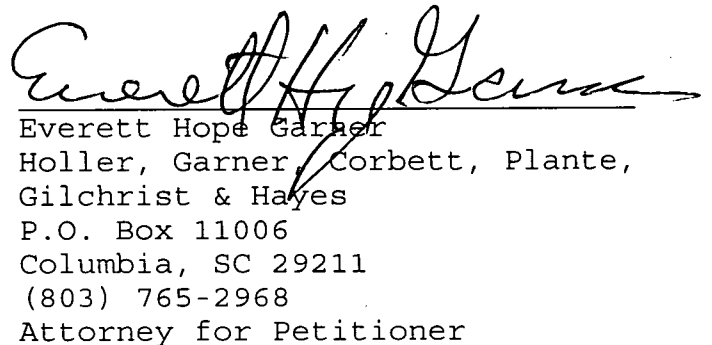 Everett Hope Garner
Everett Hope Garner
Holler, Garner, Corbett, Plante,
Gilchrist & Hayes
P.O. Box 11006
Columbia, SC 29211
(803) 765-2968
Attorney for Petitioner